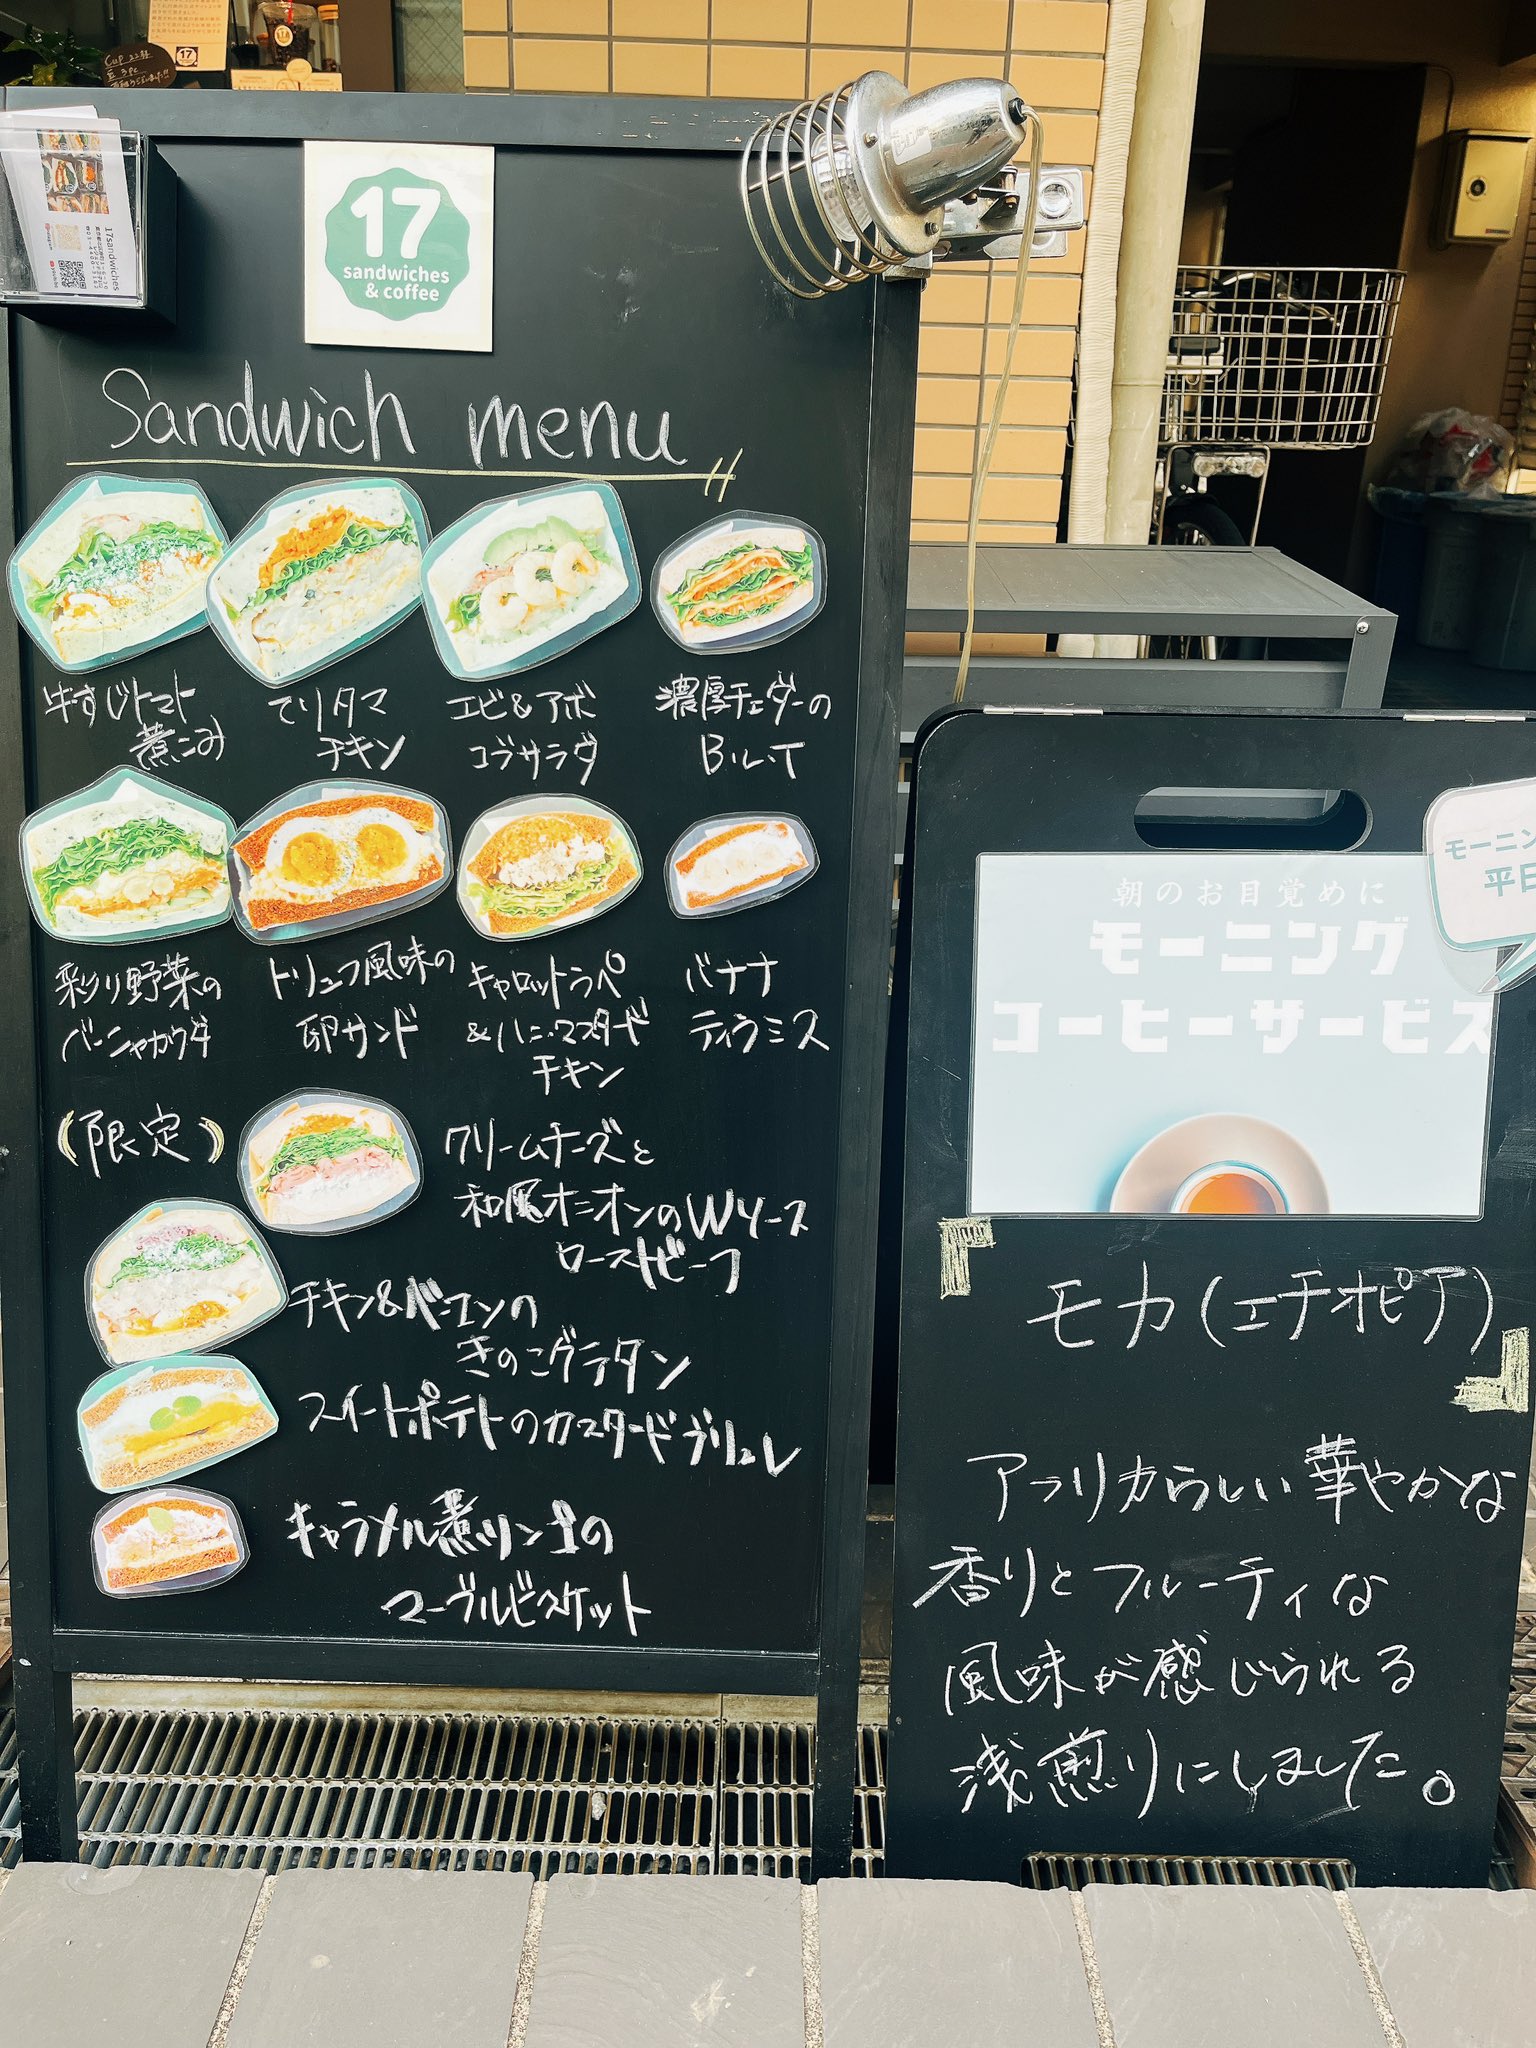 17
sandwiches
& coffee
17sandwiches
Cup
17
Sandwich menu
牛すじトマト
煮こみ
てりタマ
チキン
エビ&アボ
コブサラダ
濃厚チェダーの
B.L.T
彩り野菜の
バーニャカウダ
トリュフ風味の
卵サンド
キャロットラペ
&ハニーマスタード
チキン
バナナ
ティラミス
(限定)
クリームチーズと
和風オニオンのWソース
ローストビーフ
チキン&ベーコンの
きのこグラタン
スイートポテトのカスタードブリュレ
キャラメル煮リンゴの
マーブルビスケット
モーニン
平日
朝のお目覚めに
モーニング
コーヒーサービス
モカ(エチオピア)
アフリカらしい華やかな
香りとフルーティな
風味が感じられる
浅煎りにしました。